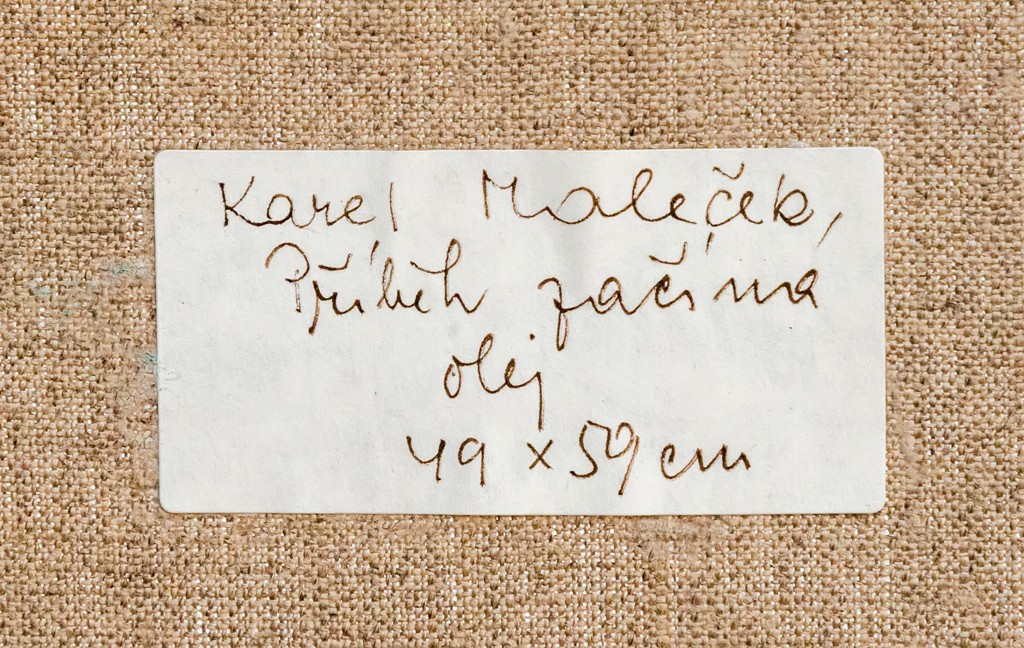 Karel Maleček,
Příběh začíma
olej
49 x 59 cm